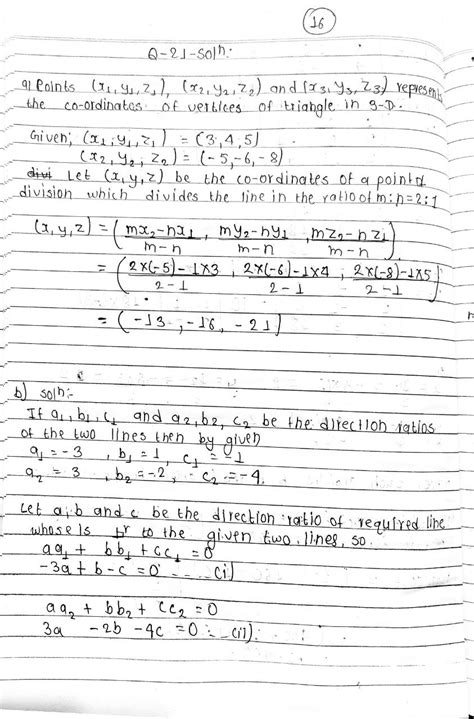 16
Q-21-Soln:
a) Points (x₁, y₁, z₁), (x₂, y₂, z₂) and (x₃, y₃, z₃) represents
the co-ordinates of vertices of triangle in 3-D.
Given; (x₁, y₁, z₁) = (3, 4, 5)
(x₂, y₂, z₂) = (-5, -6, -8)
Let (x, y, z) be the co-ordinates of a point of
division which divides the line in the ratio of m:n = 2:1
(x, y, z) = ( mx₂-nx₁ / m-n , my₂-ny₁ / m-n , mz₂-nz₁ / m-n )
= ( 2x(-5)-1x3 / 2-1 , 2x(-6)-1x4 / 2-1 , 2x(-8)-1x5 / 2-1 )
= (-13, -16, -21)
b) soln:-
If a₁, b₁, c₁ and a₂, b₂, c₂ be the direction ratios
of the two lines then by given
a₁ = -3 , b₁ = 1 , c₁ = -1
a₂ = 3 , b₂ = -2, c₂ = -4.
Let a, b and c be the direction ratio of required line
whose is br to the given two lines, so
aa₁ + bb₁ + cc₁ = 0
-3a + b - c = 0 .... (i)
aa₂ + bb₂ + cc₂ = 0
3a - 2b - 4c = 0 ... (ii).